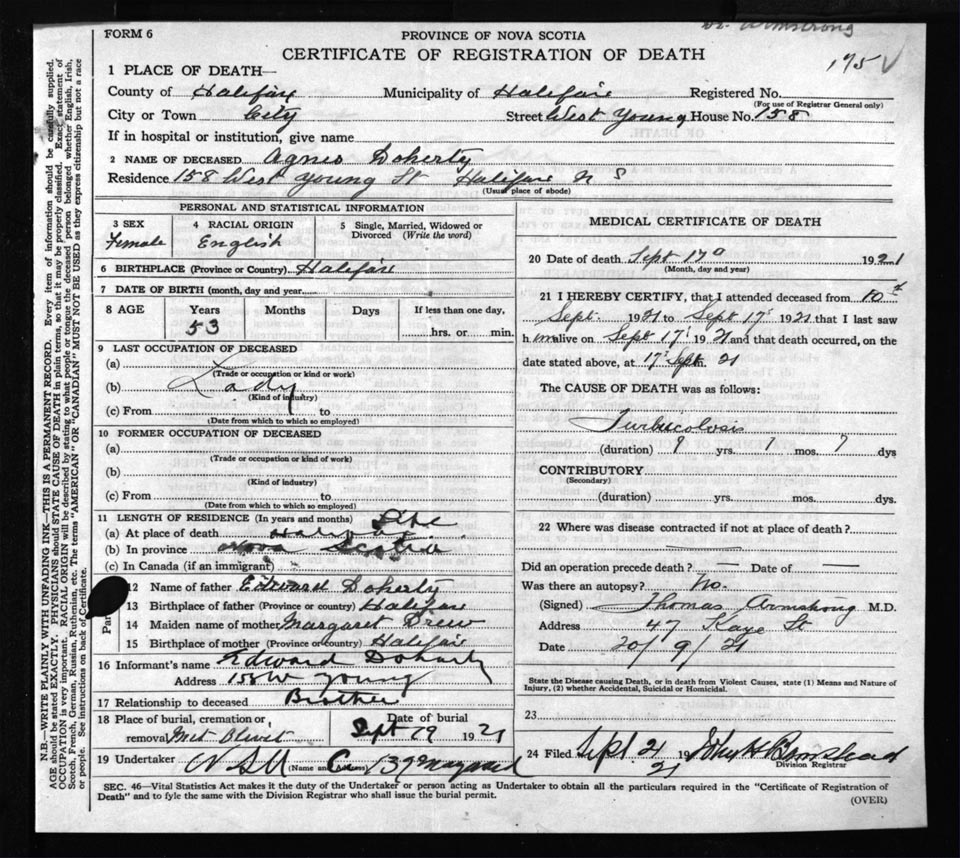 Dr. Armstrong
FORM 6
PROVINCE OF NOVA SCOTIA
CERTIFICATE OF REGISTRATION OF DEATH
195
1 PLACE OF DEATH—
County of Halifax Municipality of Halifax Registered No.
(For use of Registrar General only)
City or Town City Street West Young House No. 158
If in hospital or institution, give name
2 NAME OF DECEASED Agnes Doherty
Residence 158 West Young St Halifax N S
(Usual place of abode)
PERSONAL AND STATISTICAL INFORMATION
3 SEX 4 RACIAL ORIGIN 5 Single, Married, Widowed or Divorced (Write the word)
Female English
6 BIRTHPLACE (Province or Country) Halifax
7 DATE OF BIRTH (month, day and year)
8 AGE Years Months Days If less than one day,
53 hrs. or min.
9 LAST OCCUPATION OF DECEASED
(a)
(Trade or occupation or kind or work)
(b) Lady
(Kind of industry)
(c) From to
(Date from which to which so employed)
10 FORMER OCCUPATION OF DECEASED
(a)
(Trade or occupation or kind of work)
(b)
(Kind of industry)
(c) From to
(Date from which to which so employed)
11 LENGTH OF RESIDENCE (In years and months) Life
(a) At place of death Halifax
(b) In province Nova Scotia
(c) In Canada (if an immigrant)
12 Name of father Edward Doherty
13 Birthplace of father (Province or country) Halifax
14 Maiden name of mother Margaret Drew
15 Birthplace of mother (Province or country) Halifax
16 Informant's name Edward Doherty
Address 158 W Young
17 Relationship to deceased Brother
18 Place of burial, cremation or removal Mt Olivet
Date of burial Sept 19 1921
19 Undertaker
(Name and
MEDICAL CERTIFICATE OF DEATH
20 Date of death Sept 17 1921
(Month, day and year)
21 I HEREBY CERTIFY, that I attended deceased from 10th
Sept. 1921 to Sept 17 1921 that I last saw
h alive on Sept 17 1921 and that death occurred, on the
date stated above, at 17 Sept. 21
The CAUSE OF DEATH was as follows:
Turbucolosis
(duration) ? yrs. ? mos. ? dys
CONTRIBUTORY
(Secondary)
(duration) yrs. mos. dys.
22 Where was disease contracted if not at place of death?
Did an operation precede death? — Date of —
Was there an autopsy? No.
(Signed) Thomas Armstrong M.D.
Address 47 Kaye St
Date 20/9/21
State the Disease causing Death, or in death from Violent Causes, state (1) Means and Nature of
Injury, (2) whether Accidental, Suicidal or Homicidal.
23
24 Filed Sept 21 1921 John H Barnstead
Division Registrar
SEC. 46—Vital Statistics Act makes it the duty of the Undertaker or person acting as Undertaker to obtain all the particulars required in the "Certificate of Registration of
Death" and to fyle the same with the Division Registrar who shall issue the burial permit.
(OVER)
N.B.—WRITE PLAINLY WITH UNFADING INK.—THIS IS A PERMANENT RECORD. Every item of information should be carefully supplied.
AGE should be stated EXACTLY. PHYSICIANS should STATE CAUSE OF DEATH in plain terms, so that it may be properly classified. Exact statement of
OCCUPATION is very important. RACIAL ORIGIN will be described by stating to what people or tongue the deceased person belonged whether English, Irish,
Scotch, French, German, Russian, Ruthenian, etc. The terms "AMERICAN" OR "CANADIAN" MUST NOT BE USED as they express citizenship but not a race
or people. See instructions on back of Certificate.